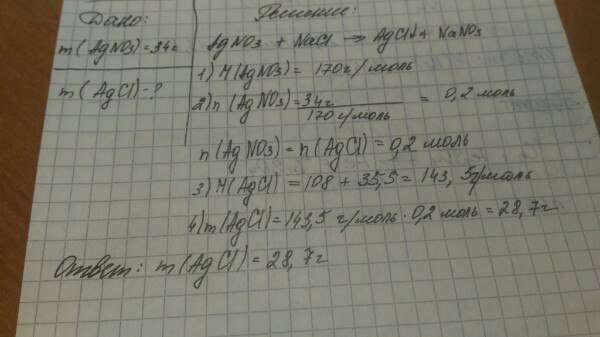 Дано:
m(AgNO3)=34г
m(AgCl)-?
Решение:
AgNO3 + NaCl → AgCl↓ + NaNO3
1) M(AgNO3) = 170г/моль
2) n(AgNO3) = 34г / 170 г/моль = 0,2 моль
n(AgNO3) = n(AgCl) = 0,2 моль
3) M(AgCl) = 108 + 35,5 = 143,5г/моль
4) m(AgCl) = 143,5 г/моль · 0,2 моль = 28,7г.
Ответ: m(AgCl) = 28,7г